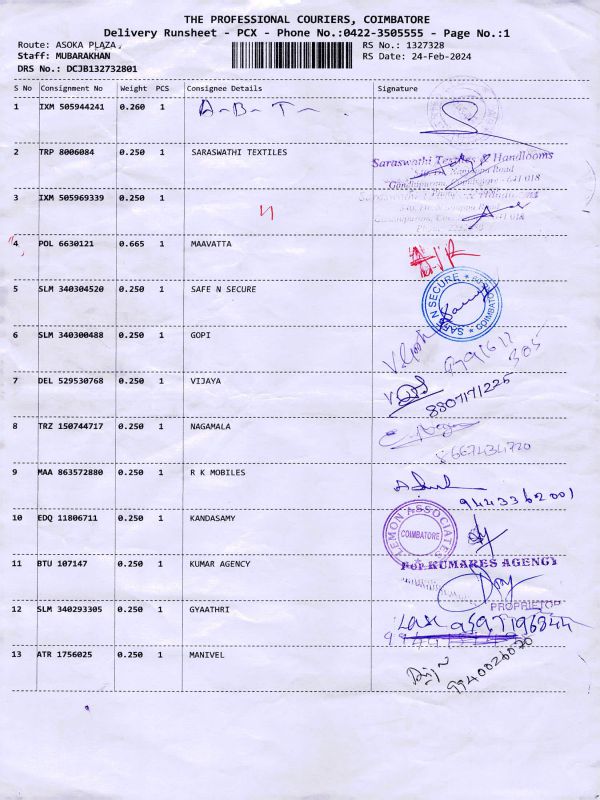 THE PROFESSIONAL COURIERS, COIMBATORE
Delivery Runsheet - PCX - Phone No.:0422-3505555 - Page No.:1
Route: ASOKA PLAZA, RS No.: 1327328
Staff: MUBARAKHAN RS Date: 24-Feb-2024
DRS No.: DCJB132732801
S No Consignment No Weight PCS Consignee Details Signature
1 IXM 505944241 0.260 1 A-B-T-
2 TRP 8006084 0.250 1 SARASWATHI TEXTILES
Saraswathi Textiles & Handlooms
Gandhipuram, Coimbatore - 641 018
3 IXM 505969339 0.250 1 4
4 POL 6630121 0.665 1 MAAVATTA
5 SLM 340304520 0.250 1 SAFE N SECURE
SAFE N SECURE * COIMBATORE *
6 SLM 340300488 0.250 1 GOPI
7 DEL 529530768 0.250 1 VIJAYA
8807171225
8 TRZ 150744717 0.250 1 NAGAMALA
8667434720
9 MAA 863572880 0.250 1 R K MOBILES
9443362001
10 EDQ 11806711 0.250 1 KANDASAMY
LEMON ASSOCIATES
COIMBATORE
11 BTU 107147 0.250 1 KUMAR AGENCY
For KUMARES AGENCY
PROPRIETOR
12 SLM 340293305 0.250 1 GYAATHRI
13 ATR 1756025 0.250 1 MANIVEL
9940026070